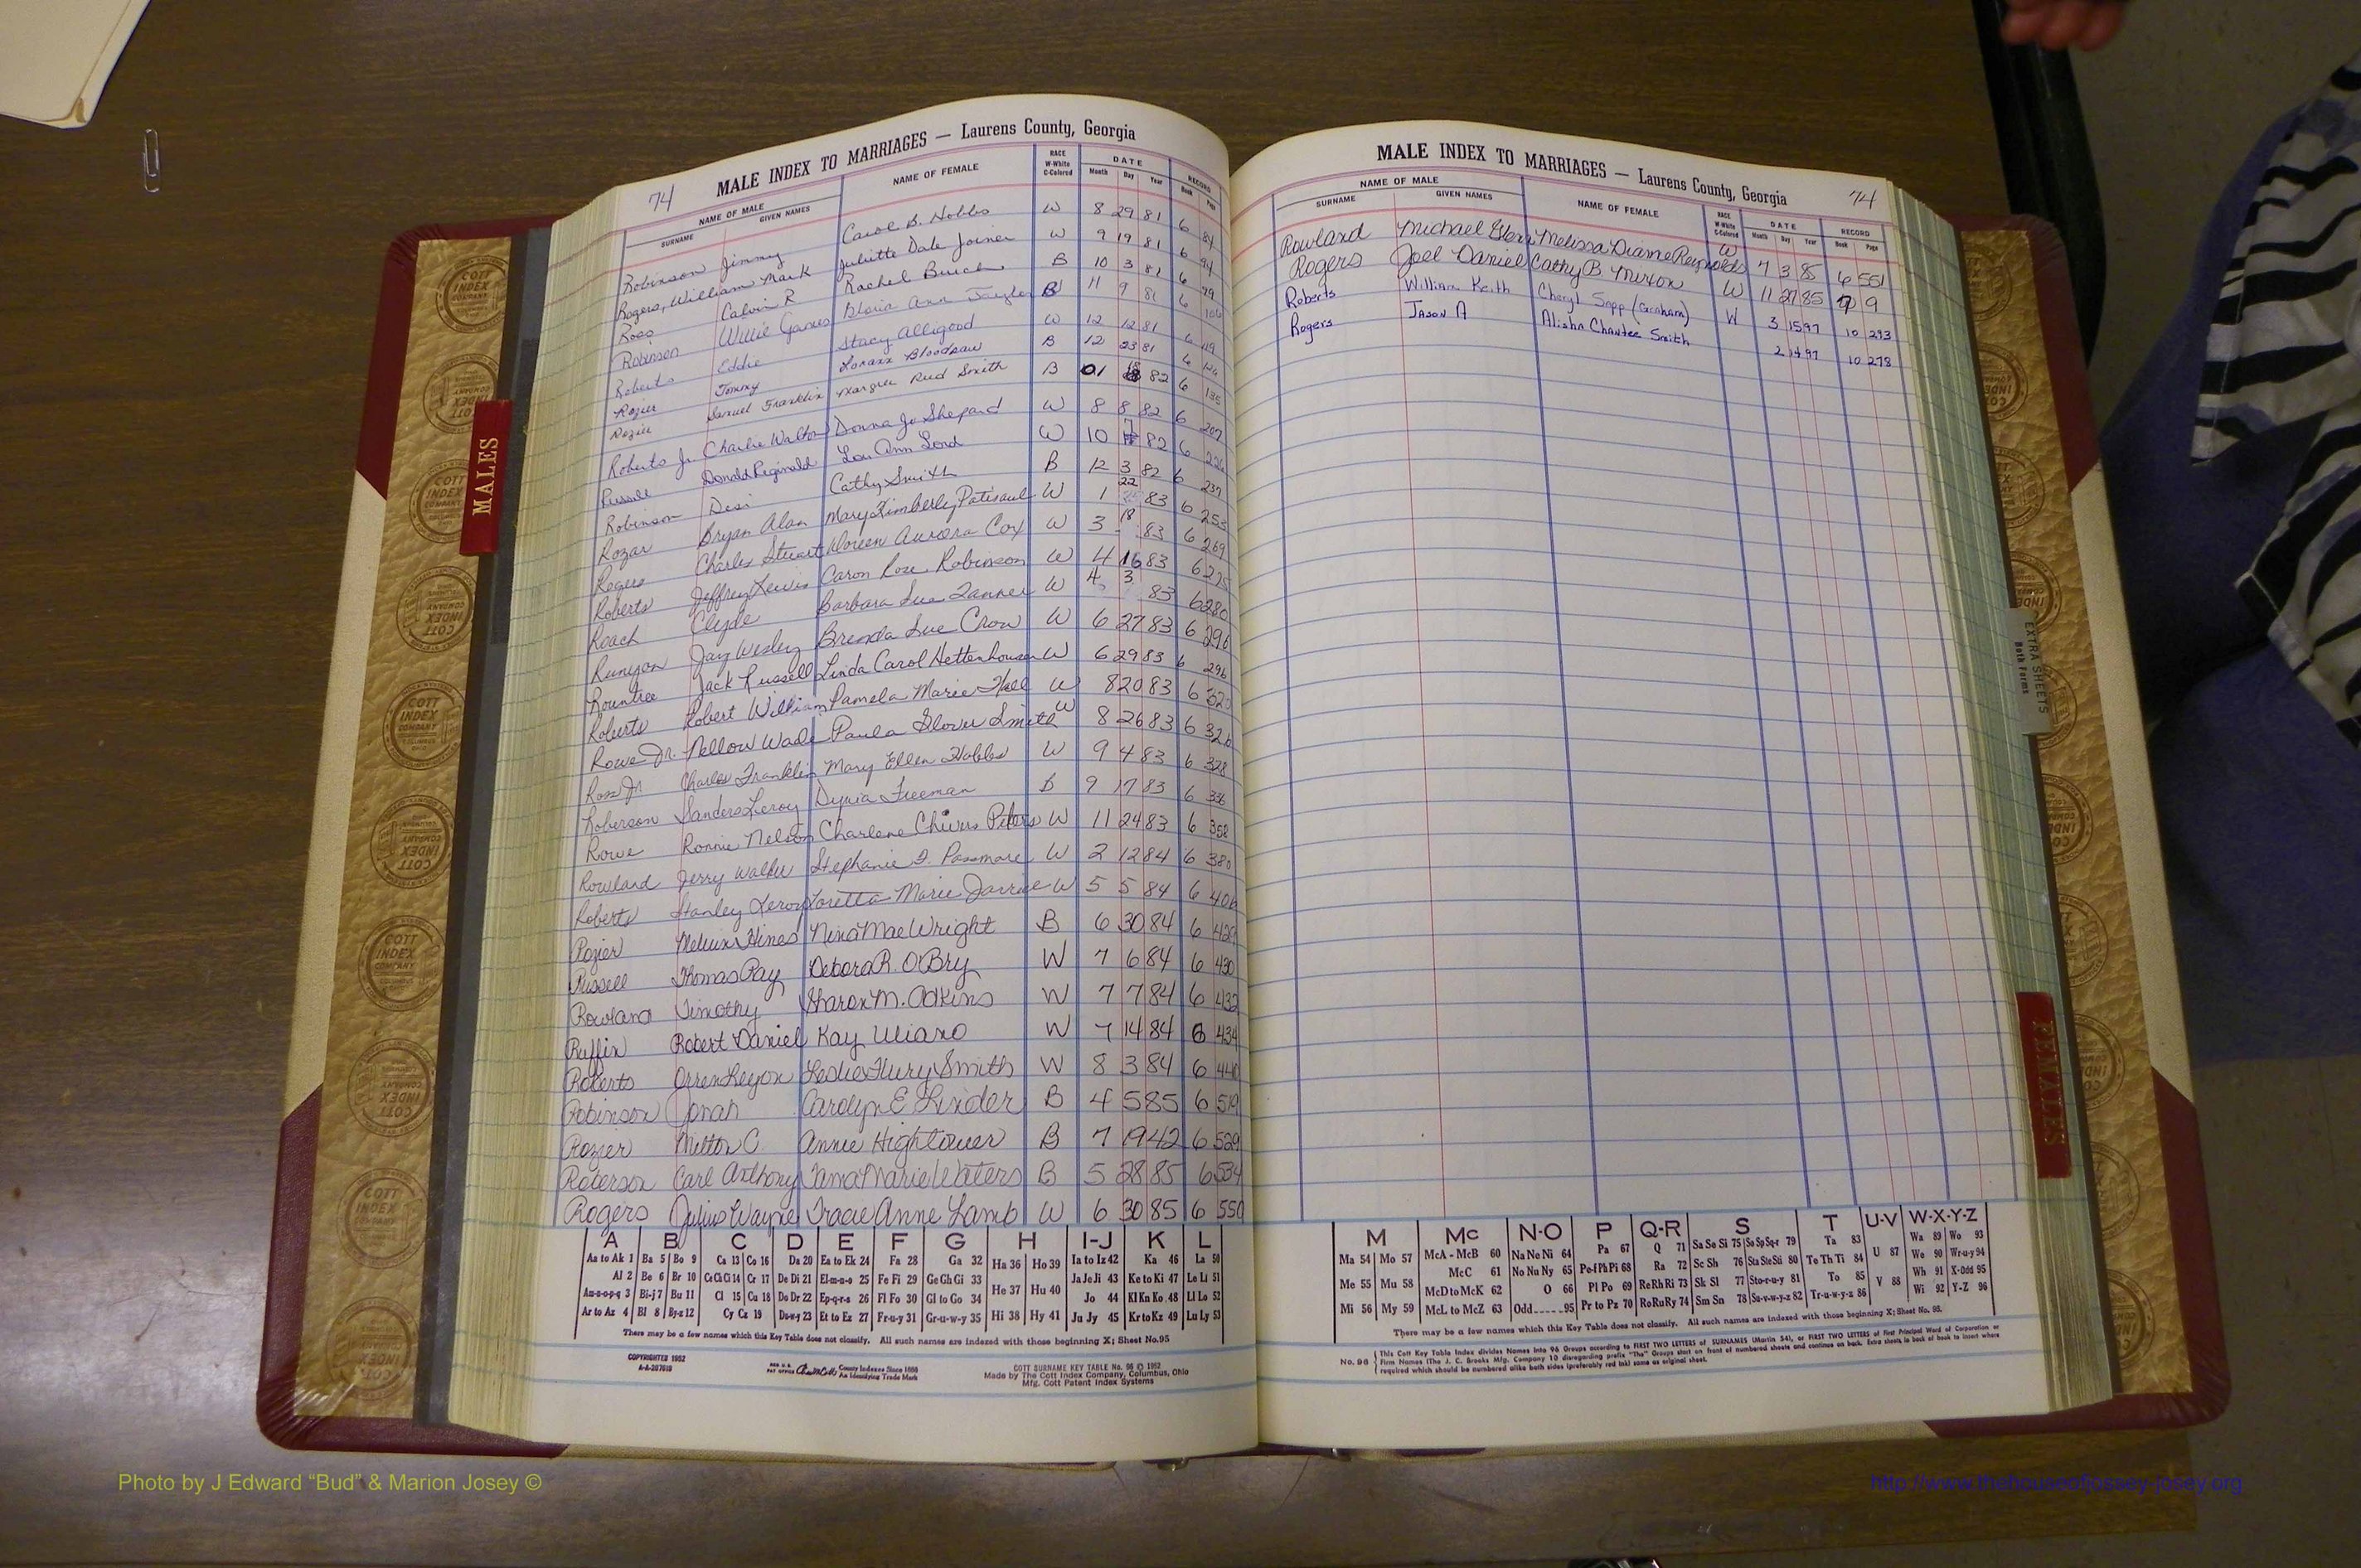 74 MALE INDEX TO MARRIAGES — Laurens County, Georgia
NAME OF MALE NAME OF FEMALE RACE DATE RECORD
SURNAME GIVEN NAMES W-White C-Colored Month Day Year Book Page
Robinson Jimmy Carol B. Hobbs W 8 29 81 6 84
Rogers, William Mark Juliette Dale Joiner W 9 19 81 6 94
Ross Calvin R Rachel Burch B 10 3 81 6
Robinson Willie Gloria Ann B 11 9 81 6
Roberts Eddie Stacy Alligood W 12 12 81 6 119
Rozier Tommy Bloodsaw B 12 23 81 6
Rozier Samuel Franklin Smith B 01 82 6 135
Roberts Jr Charlie Walton Donna Jo Shepard W 8 8 82 6 207
Russell Donald Reginald Lou Ann Lord W 10 82 6
Robinson Desi Cathy Smith B 12 3 82 6 237
Rozar Bryan Alan Mary Kimberly Patisaul W 1 22 83 6 253
Rogers Charles Stuart Doreen Aurora Cox W 3 18 83 6 269
Roberts Jeffrey Lewis Caron Rose Robinson W 4 16 83 6 275
Roach Clyde Barbara Sue Tanner W 4 3 83 6 280
Runyon Jay Wesley Brenda Sue Crow W 6 27 83 6 296
Rountree Jack Russell Linda Carol Hettenhouser W 6 29 83 6 296
Roberts Robert William Pamela Marie Hall W 8 20 83 6
Rowe Jr. Nellow Wade Paula Glover Smith W 8 26 83 6 326
Ross Jr Charles Franklin Mary Ellen Hobbs W 9 4 83 6 328
Roberson Sanders Leroy Freeman B 9 17 83 6 336
Rowe Ronnie Nelson Charlene Chivers Peters W 11 24 83 6 358
Rowland Jerry Walker Stephanie Passmore W 2 12 84 6 380
Roberts Stanley Leroy Loretta Marie W 5 5 84 6 406
Rozier Melvin Hines Nina Mae Wright B 6 30 84 6 429
Russell Thomas Ray Debora R. O'Bry W 7 6 84 6 430
Rowland Timothy Sharon M. Adkins W 7 7 84 6 432
Ruffin Robert Daniel Kay W 7 14 84 6 434
Roberts Orren Leyon Leslie Flury Smith W 8 3 84 6 440
Robinson Jonah Carolyn E Linder B 4 5 85 6 519
Rozier Milton C Annie Hightower B 7 19 42 6 529
Roberson Carl Anthony Tama Marie Waters B 5 28 85 6 534
Rogers Julius Wayne Tracie Anne Lamb W 6 30 85 6 550
A B C D E F G H I-J K L
Aa to Ak 1 Ba 5 Bo 9 Ca 13 Co 16 Da 20 Ea to Ek 24 Fa 28 Ga 32 Ha 36 Ho 39 Ia to Iz 42 Ka 46 La 50
Al 2 Be 6 Br 10 Ce Ch Ci 14 Cr 17 De Di 21 El-m-n-o 25 Fe Fi 29 Ge Gh Gi 33 He 37 Hu 40 Ja Je Ji 43 Ke to Ki 47 Le Li 51
Am-n-o-p-q 3 Bi-j 7 Bu 11 Cl 15 Cu 18 Do Dr 22 Ep-q-r-s 26 Fl Fo 30 Gl to Go 34 Jo 44 Kl Kn Ko 48 Ll Lo 52
Ar to Az 4 Bl 8 By-z 12 Cy Cz 19 Du-w-y 23 Et to Ez 27 Fr-u-y 31 Gr-u-w-y 35 Hi 38 Hy 41 Ju Jy 45 Kr to Kz 49 Lu Ly 53
There may be a few names which this Key Table does not classify. All such names are indexed with those beginning X; Sheet No.95
COPYRIGHTED 1952
County Indexes Since 1888
An Identifying Trade Mark
COTT SURNAME KEY TABLE No. 96 © 1952
Made by The Cott Index Company, Columbus, Ohio
Mfg. Cott Patent Index Systems
MALE INDEX TO MARRIAGES — Laurens County, Georgia 74
NAME OF MALE NAME OF FEMALE RACE DATE RECORD
SURNAME GIVEN NAMES W-White C-Colored Month Day Year Book Page
Rowland Michael Glenn Melissa Diane Reynolds W 7 3 85 6 551
Rogers Joel Daniel Cathy B Mixon W 11 27 85 7 9
Roberts William Keith Cheryl Sapp (Graham) W 3 15 97 10 293
Rogers Jason A Alisha Chantee Smith 2 14 97 10 278
M Mc N-O P Q-R S T U-V W-X-Y-Z
Ma 54 Mo 57 McA - McB 60 Na Ne Ni 64 Pa 67 Q 71 Sa Se Si 75 So Sp Sq-r 79 Ta 83 U 87 Wa 89 Wo 93
Me 55 Mu 58 McC 61 No Nu Ny 65 Pe-f Ph Pi 68 Ra 72 Sc Sh 76 Sta Ste Sti 80 Te Th Ti 84 V 88 We 90 Wr-u-y 94
McD to McK 62 O 66 Pl Po 69 Re Rh Ri 73 Sk Sl 77 Sto-r-u-y 81 To 85 Wh 91 X-Odd 95
Mi 56 My 59 McL to McZ 63 Odd-----95 Pr to Pz 70 Ro Ru Ry 74 Sm Sn 78 Su-v-w-y-z 82 Tr-u-w-y-z 86 Wi 92 Y-Z 96
There may be a few names which this Key Table does not classify. All such names are indexed with those beginning X; Sheet No. 95.
No. 96
This Cott Key Table Index divides Names into 96 Groups according to FIRST TWO LETTERS of SURNAMES (Martin 54), or FIRST TWO LETTERS of First Principal Word of Corporation or
Firm Names (The J. C. Brooks Mfg. Company 10 disregarding prefix "The" Groups start on front of numbered sheets and continue on back. Extra sheets in back of book to insert where
required which should be numbered alike both sides (preferably red ink) same as original sheet.
MALES
FEMALES
EXTRA SHEETS
Both Forms
COTT INDEX COMPANY
Photo by J Edward “Bud” & Marion Josey ©
http://www.thehouseofjossey-josey.org